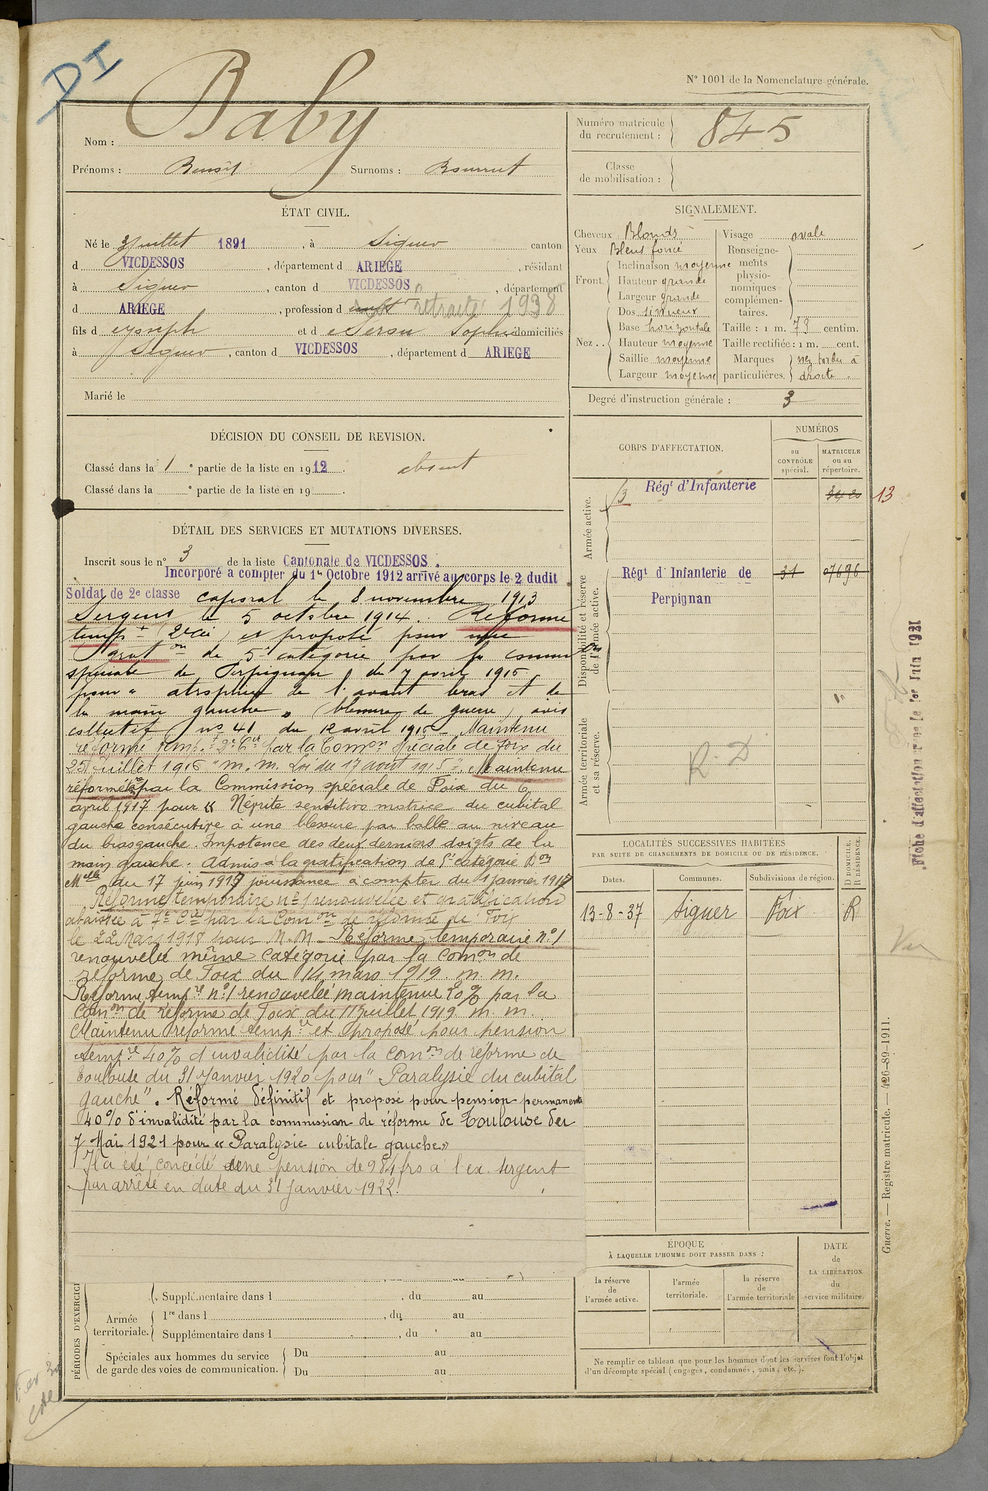 DI
N° 1001 de la Nomenclature générale.
Nom : Baby
Prénoms : Benoît Surnoms :
Numéro matricule du recrutement : 845
Classe de mobilisation :
ÉTAT CIVIL.
Né le 3 Juillet 1891, à Siguer canton
d VICDESSOS, département d ARIEGE, résidant
à Siguer, canton d VICDESSOS, département
d ARIEGE, profession d retraité 1938
fils d Joseph et d Sophie domiciliés
à Siguer, canton d VICDESSOS, département d ARIEGE
Marié le
SIGNALEMENT.
Cheveux Blonds
Yeux Bleus foncé
Front Inclinaison moyenne
Hauteur grande
Largeur grande
Nez Dos sinueux
Base horizontale
Hauteur moyenne
Saillie moyenne
Largeur moyenne
Visage ovale
Renseignements physionomiques complémentaires.
Taille : 1 m. 73 centim.
Taille rectifiée : 1 m. cent.
Marques particulières. nez tordu à droite.
Degré d'instruction générale : 3
DÉCISION DU CONSEIL DE REVISION.
Classé dans la 1 e partie de la liste en 1912. absent
Classé dans la e partie de la liste en 19 .
DÉTAIL DES SERVICES ET MUTATIONS DIVERSES.
Inscrit sous le n° 3 de la liste Cantonale de VICDESSOS.
Incorporé à compter du 1er Octobre 1912 arrivé au corps le 2 dudit
Soldat de 2e classe caporal le 8 novembre 1913
Sergent le 5 octobre 1914. Réformé
tempre (2e Cie) et proposé pour une
graton de 5e catégorie par la comm
spéciale de Perpignan du 7 avril 1915
pour " atrophie de l'avant bras et de
la main gauche " (blessure de guerre) avis
collectif no 41 du 12 avril 1915. Maintenu
réformé temp. par la Comon spéciale de Foix du
25 Juillet 1916 m. m. Loi du 17 août 1915. Maintenu
réformé par la Commission spéciale de Foix du 6
avril 1917 pour « Névrite sensitivo motrice du cubital
gauche consécutive à une blessure par balle au niveau
du bras gauche. Impotence des deux derniers doigts de la
main gauche. Admis à la gratification de 5e catégorie Don
Melle du 17 juin 1917 jouissance à compter du 1 janvier 1917
Réforme temporaire n° 1 renouvelée et gratification
abaissée à 7e Cie par la Comon de réforme de Foix
le 22 Mars 1918 pour M.M. Réforme temporaire n° 1
renouvelée même catégorie par la Comon de
réforme de Foix du 14 mars 1919. m. m.
Réforme tempre n° 1 renouvelée maintenue 20% par la
Comon de réforme de Foix du 11 Juillet 1919. m. m.
Maintenu réformé tempre et proposé pour pension
tempre 40% d'invalidité par la comon de réforme de
Toulouse du 31 Janvier 1920 pour " Paralysie du cubital
gauche". Réformé définitif et proposé pour pension permanente
40% d'invalidité par la commission de réforme de Toulouse du
7 Mai 1921 pour « Paralysie cubitale gauche »
Il a été concédé une pension de 984 frs à l'ex sergent
par arrêté en date du 31 Janvier 1922.
PÉRIODES D'EXERCICE
Supplémentaire dans l , du au
Armée territoriale. 1re dans l , du au
Supplémentaire dans l , du au
Spéciales aux hommes du service de garde des voies de communication. Du au
Du au
CORPS D'AFFECTATION.
NUMÉROS
au CONTRÔLE spécial.
MATRICULE ou au répertoire.
Armée active.
Régt d'Infanterie
13
Disponibilité et réserve de l'armée active.
Régt d'Infanterie de Perpignan 31 07696
Armée territoriale et sa réserve.
R. D
LOCALITÉS SUCCESSIVES HABITÉES
PAR SUITE DE CHANGEMENTS DE DOMICILE OU DE RÉSIDENCE.
Dates. Communes. Subdivisions de région. D DOMICILE, R RÉSIDENCE.
13-8-37 Siguer Foix R
ÉPOQUE
À LAQUELLE L'HOMME DOIT PASSER DANS :
la réserve de l'armée active.
l'armée territoriale.
la réserve de l'armée territoriale
DATE de LA LIBÉRATION du service militaire.
Ne remplir ce tableau que pour les hommes dont les services font l'objet
d'un décompte spécial (engagés, condamnés, omis, etc.).
Fiche d'affectation le 1er Juin 1921
Vu
Guerre. — Registre matricule. — 426-89-1911.